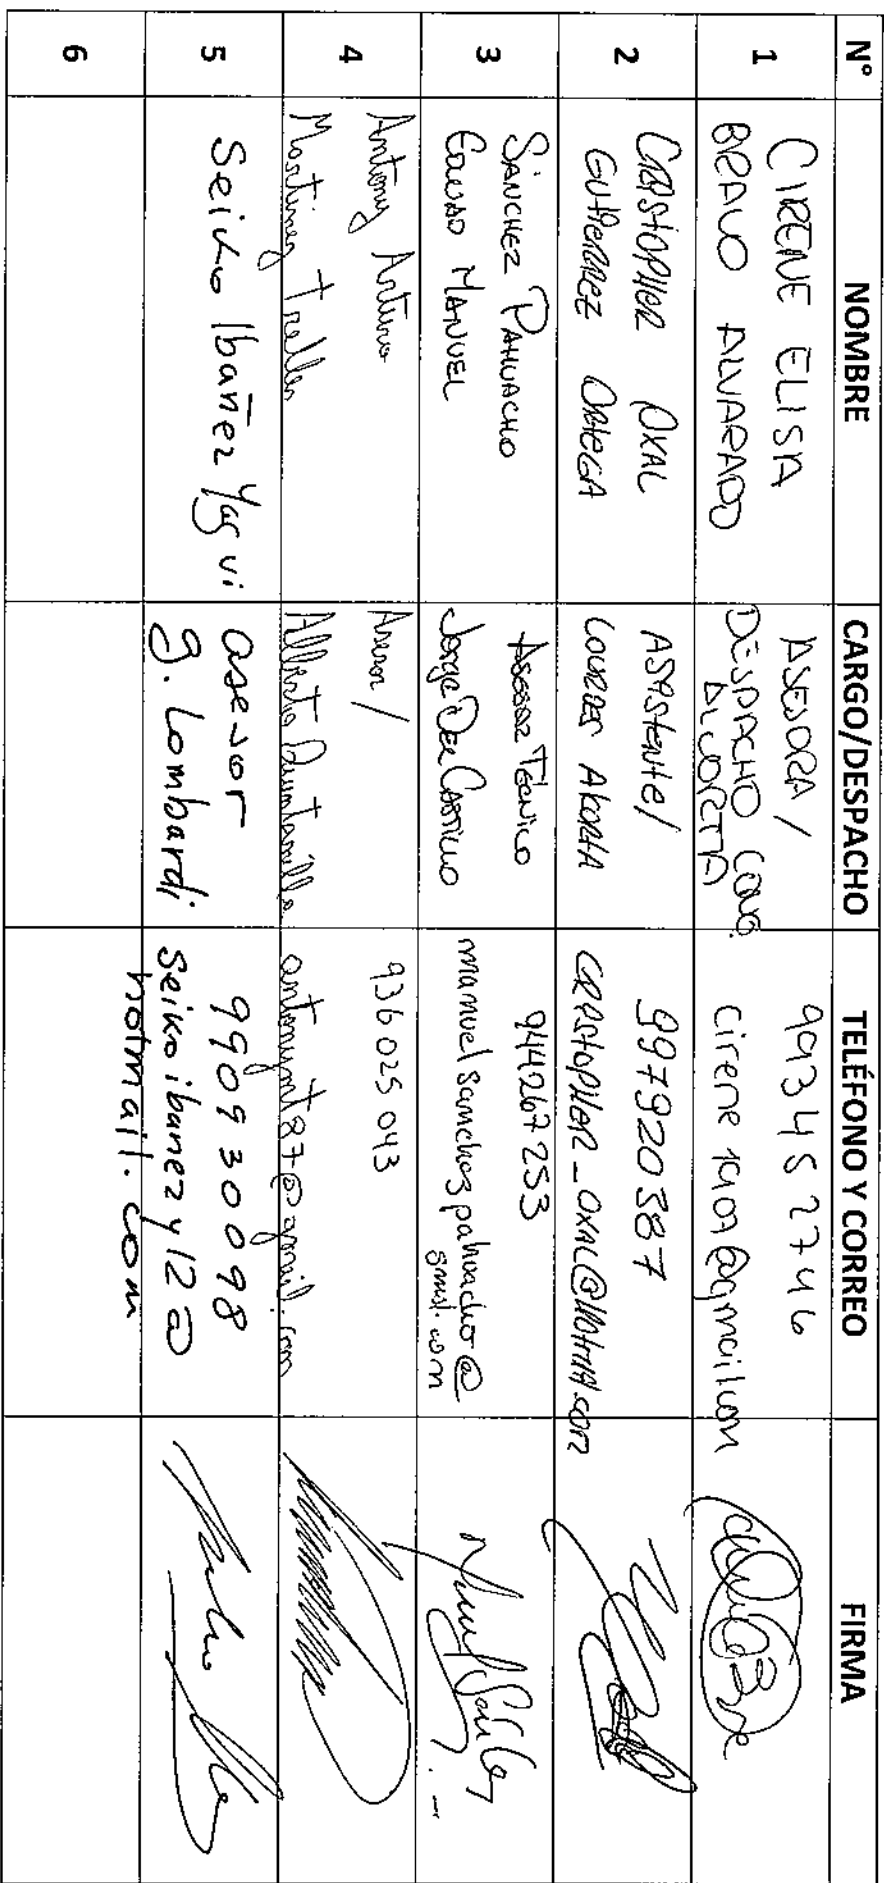 N° NOMBRE CARGO/DESPACHO TELÉFONO Y CORREO FIRMA
1
CIRENE ELISA
BRAVO ALVARADO
ASESORA/
DESPACHO CONG.
ALCORTA
993452746
cirene1909@gmail.com
2
CRISTOPHER OXAL
GUTIERREZ ORTEGA
ASISTENTE/
LOURDES ALCORTA
997920387
CRISTOPHER_OXAL@HOTMAIL.COM
3
SÁNCHEZ PAHUACHO
MANUEL
ASESOR TÉCNICO
Jorge Del Castillo
944267253
manuelsanchezpahuacho@
gmail.com
4
Antony Arturo
Martinez Trelles
Asesor/
Alberto Quintanilla
936025043
antonymt87@gmail.com
5
Seiko Ibañez Yagui
asesor
g. Lombardi
990930098
Seikoibanezy12@
hotmail.com
6